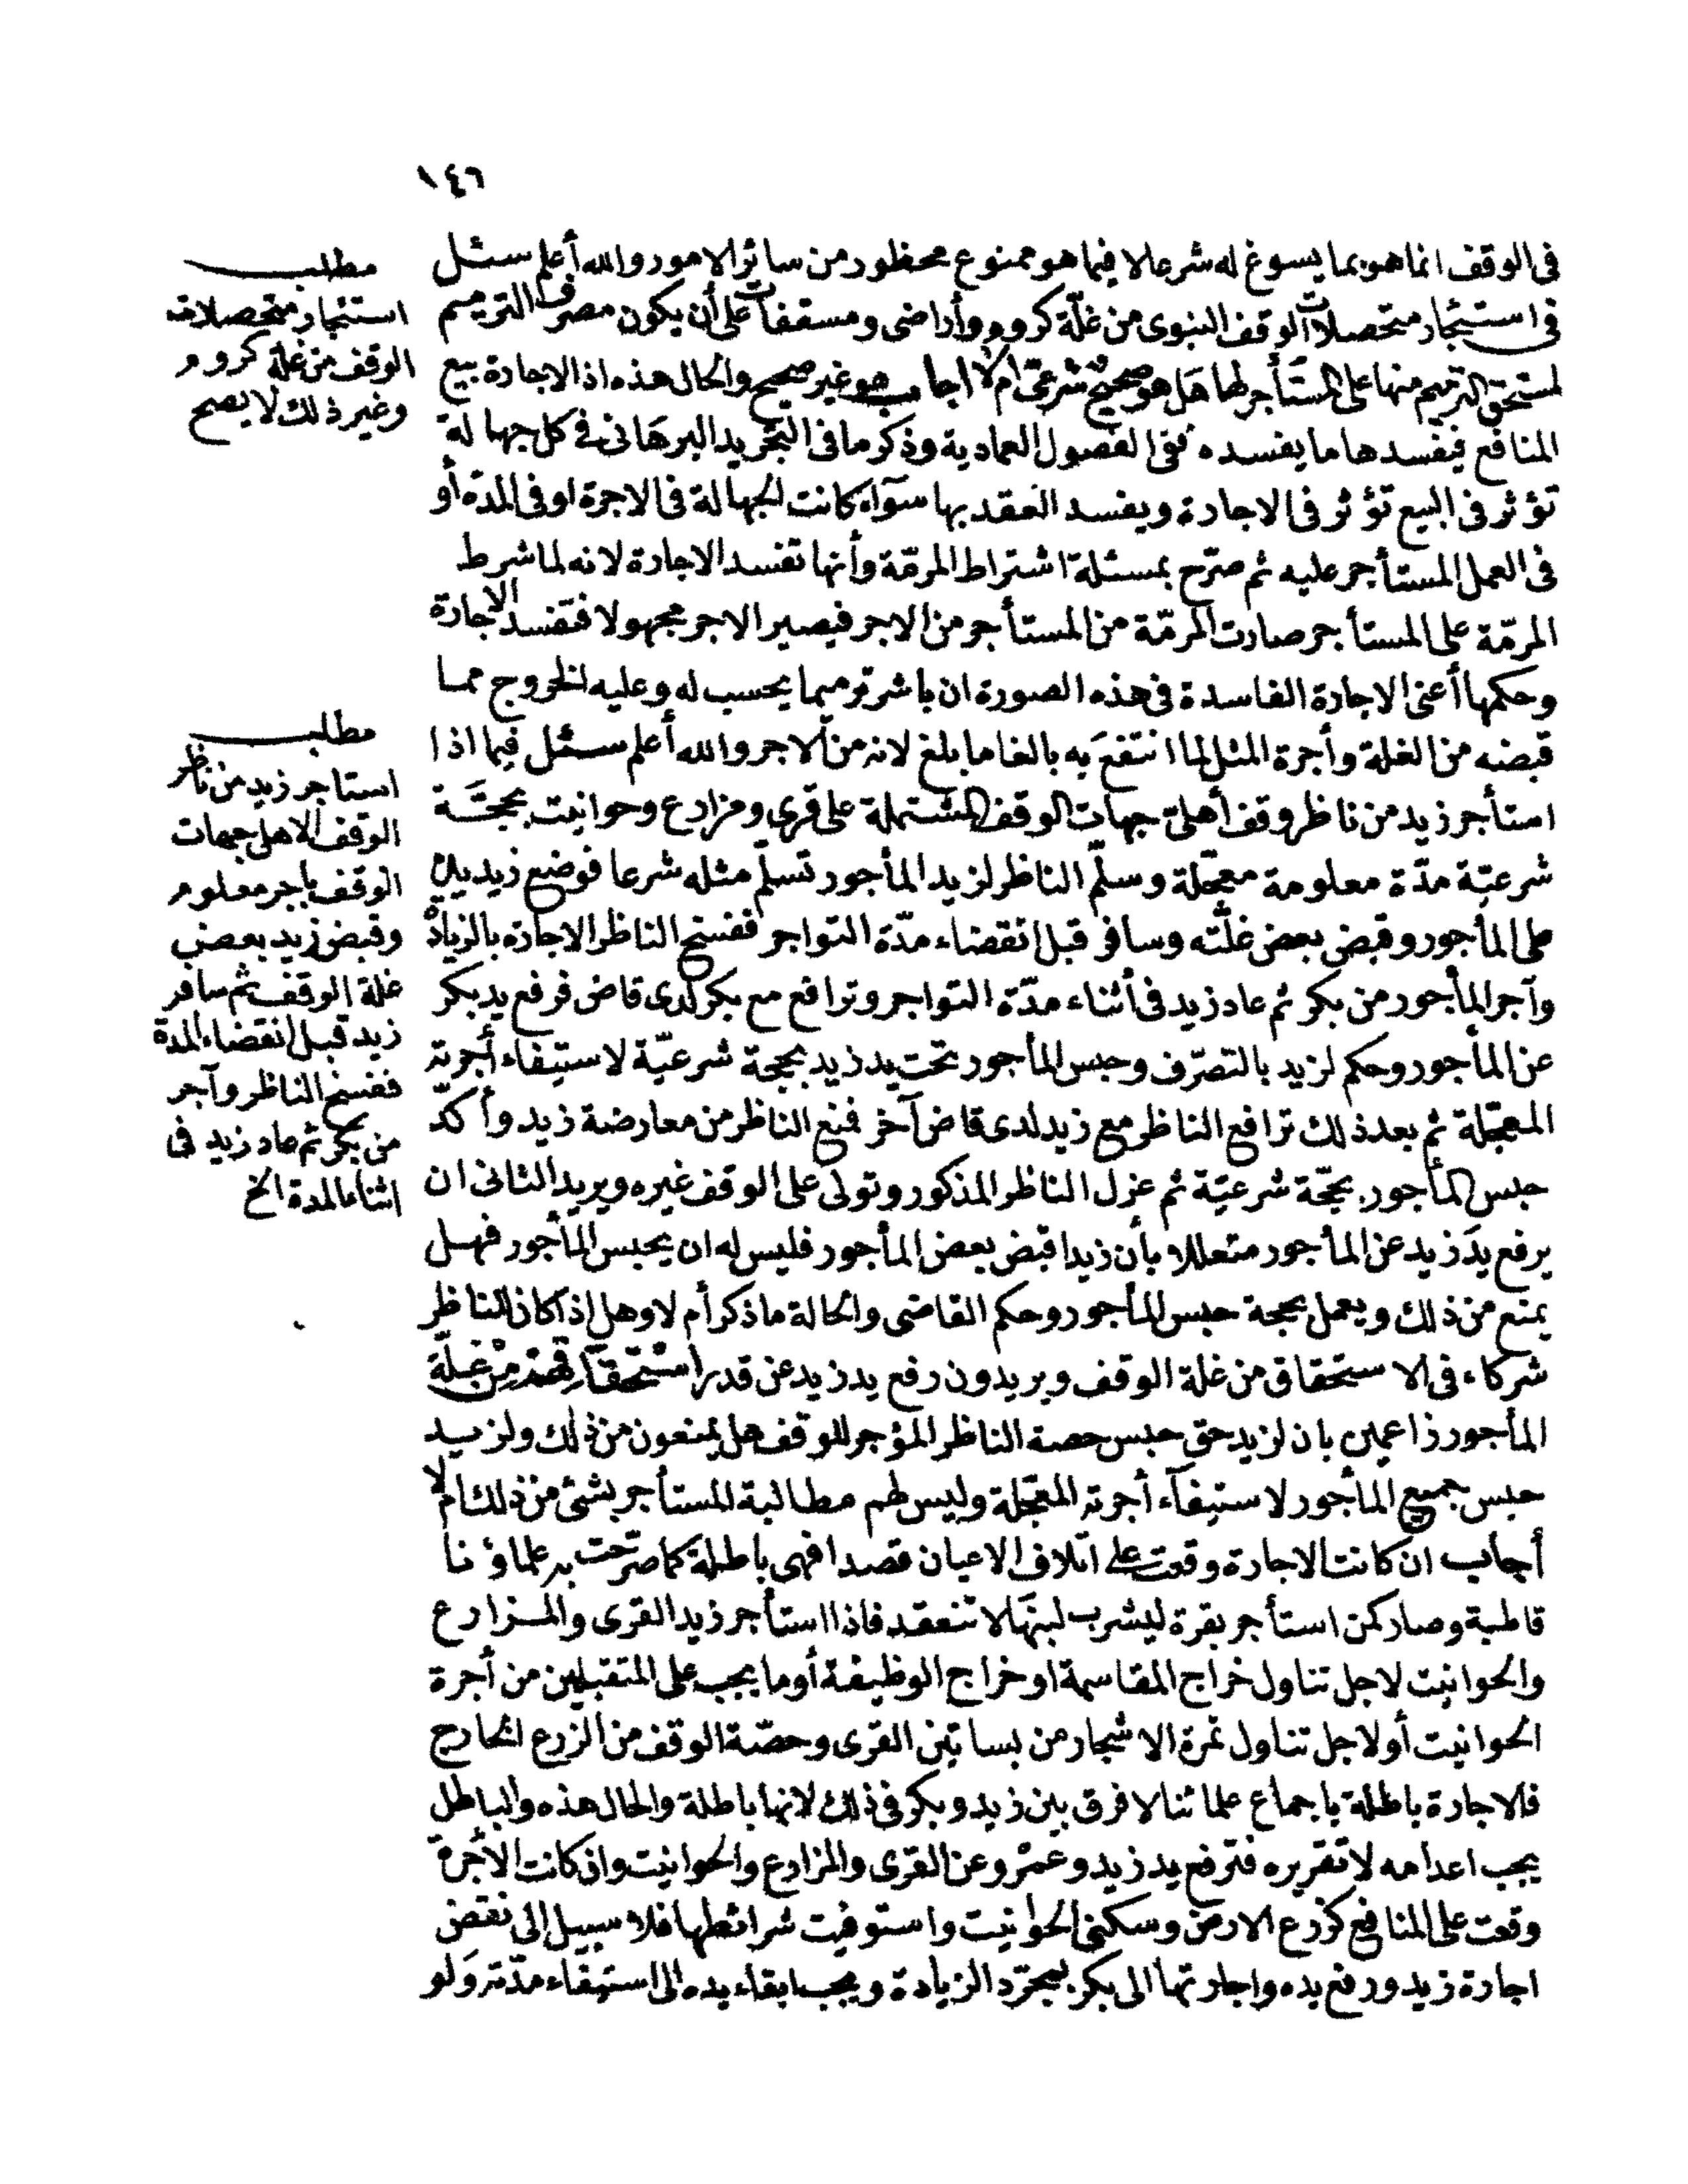 ١٤٦
فى الوقف انما هو بما يسوغ له شرعا لا فيما هو ممنوع محظور من سائر الامور والله أعلم سئل
فى استئجار متحصلات الوقف النبوى من غلّة كروم وأراضى ومسقفات على أن يكون مصرف الترميم
لمستحق الترميم منها على المستأجر لها هَل هو صحيح شرعى ام لا اجاب هو غير صحيح والحال هذه اذ الاجارة بيع
المنافع فيفسدها ما يفسده ففى الفصول العمادية وذكر ما فى التجريد البرهانى فى كل جهالة
تؤثر فى البيع تؤثر فى الاجارة ويفسد العقد بها سوآء كانت الجهالة فى الاجرة او فى المدّة أو
فى العمل المستأجر عليه ثم صرّح بمسئلة اشتراط المرمّة وأنها تفسد الاجارة لانه لما شرط
المرمّة على المستأجر صارت المرمّة من المستأجر من الاجر فيصير الاجر مجهولا فتفسد الاجارة
وحكمها أعنى الاجارة الفاسدة فى هذه الصورة ان باشر ترميما يحسب له وعليه الخروج مما
قبضه من الغلة وأجرة المثل لما انتفعَ به بالغا ما بلغ لانه من الاجر والله أعلم سئل فيما اذا
استأجر زيد من ناظر وقف أهلىّ جهات الوقف المشتملة على قرى ومزارع وحوانيت بحجّة
شرعيّة مدّة معلومة معجّلة وسلّم الناظر لزيد المأجور تسلّم مثله شرعا فوضع زيد يده
على المأجور وقبض بعض غلّته وسافر قبل انقضاء مدّة التواجر ففسخ الناظر الاجارة بالزيادة
وآجر المأجور من بكر ثم عاد زيد فى أثناء مدّة التواجر وترافع مع بكر لدى قاض فرفع يد بكر
عن المأجور وحكم لزيد بالتصرّف وحبس المأجور تحت يد زيد بحجة شرعيّة لاستيفاء أجرته
المعجّلة ثم بعد ذلك ترافع الناظر مع زيد لدى قاض آخر فمنع الناظر من معارضة زيد وأكدّ
حبس المأجور بحجّة شرعيّة ثم عزل الناظر المذكور وتولى على الوقف غيره ويريد الثانى ان
يرفع يدَ زيد عن المأجور متعللا بأن زيدا قبض بعض المأجور فليس له ان يحبس المأجور فهل
يمنع من ذلك ويعمل بحجة حبس المأجور وحكم القاضى والحالة ما ذكر أم لا وهل اذا كان الناظر
شركاء فى الاستحقاق من غلة الوقف ويريدون رفع يد زيد عن قدر استحقاقهم من غلّة
المأجور زاعمين بان لزيد حق حبس حصة الناظر المؤجر للوقف هل يمنعون من ذلك ولزيد
حبس جميع المأجور لاستيفآء أجرته المعجّلة وليس لهم مطالبة المستأجر بشئ من ذلك ام لا
أجاب ان كانت الاجارة وقعت على اتلاف الاعيان قصدا فهى باطلة كما صرّحت به علماؤنا
قاطبة وصار كمن استأجر بقرة ليشرب لبنهَا لا تنعقد فاذا استأجر زيد القرى والمزارع
والحوانيت لاجل تناول خراج المقاسمة او خراج الوظيفة أو ما يجب على المتقبلين من أجرة
الحوانيت أو لاجل تناول ثمرة الاشجار من بساتين القرى وحصّة الوقف من الزرع الخارج
فالاجارة باطلة باجماع علمائنا لا فرق بين زيد وبكر فى ذلك لانها باطلة والحال هذه والباطل
يجب اعدامه لا تقريره فترفع يد زيد وعمرو عن القرى والمزارع والحوانيت وان كانت الأجرة
وقعت على المنافع كزرع الارض وسكنى الحوانيت واستوفيت شرائطها فلا سبيل الى نقض
اجارة زيد ورفع يده واجارتها الى بكر بمجرّد الزيادة ويجب ابقاء يده الى استيفاء مدّته ولو
مطلب
استئجار متحصلات
الوقف من غلة كروم
وغير ذلك لا يصح
مطلب
استاجر زيد من ناظر
الوقف الاهلى جهات
الوقف باجر معلوم
وقبض زيد بعض
غلة الوقف ثم سافر
زيد قبل انقضاء المدة
ففسخ الناظر وآجر
من بكر ثم عاد زيد فى
اثناء المدة الخ